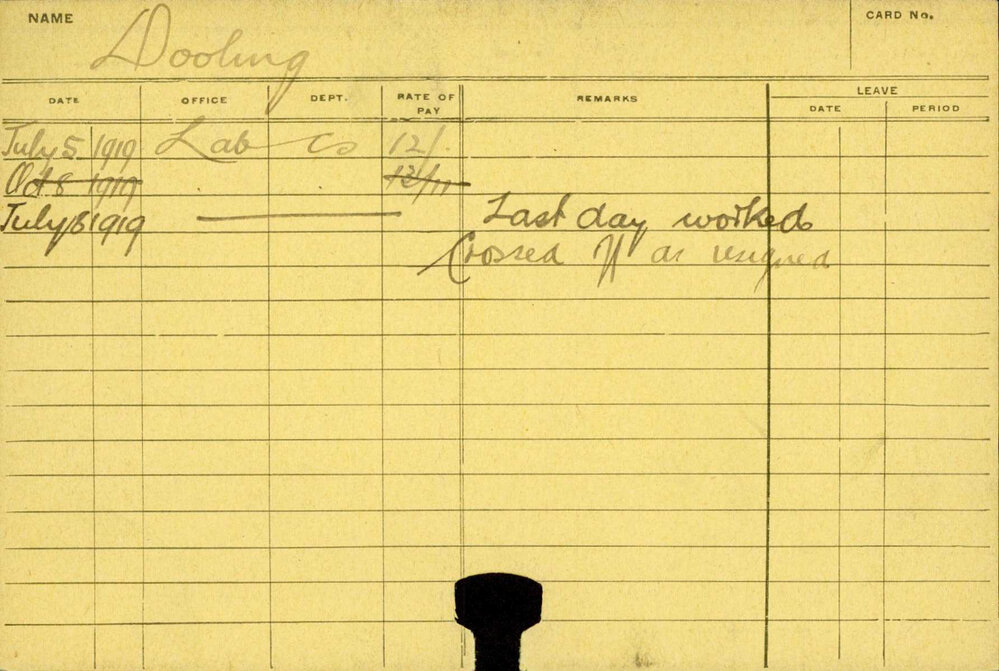 NAME Dooling CARD No.
DATE OFFICE DEPT. RATE OF PAY REMARKS LEAVE
DATE PERIOD
July 5 1919 Lab Co 12/.
Oct 8 1919 12/11
July 18 1919 Last day worked
Crossed off as resigned